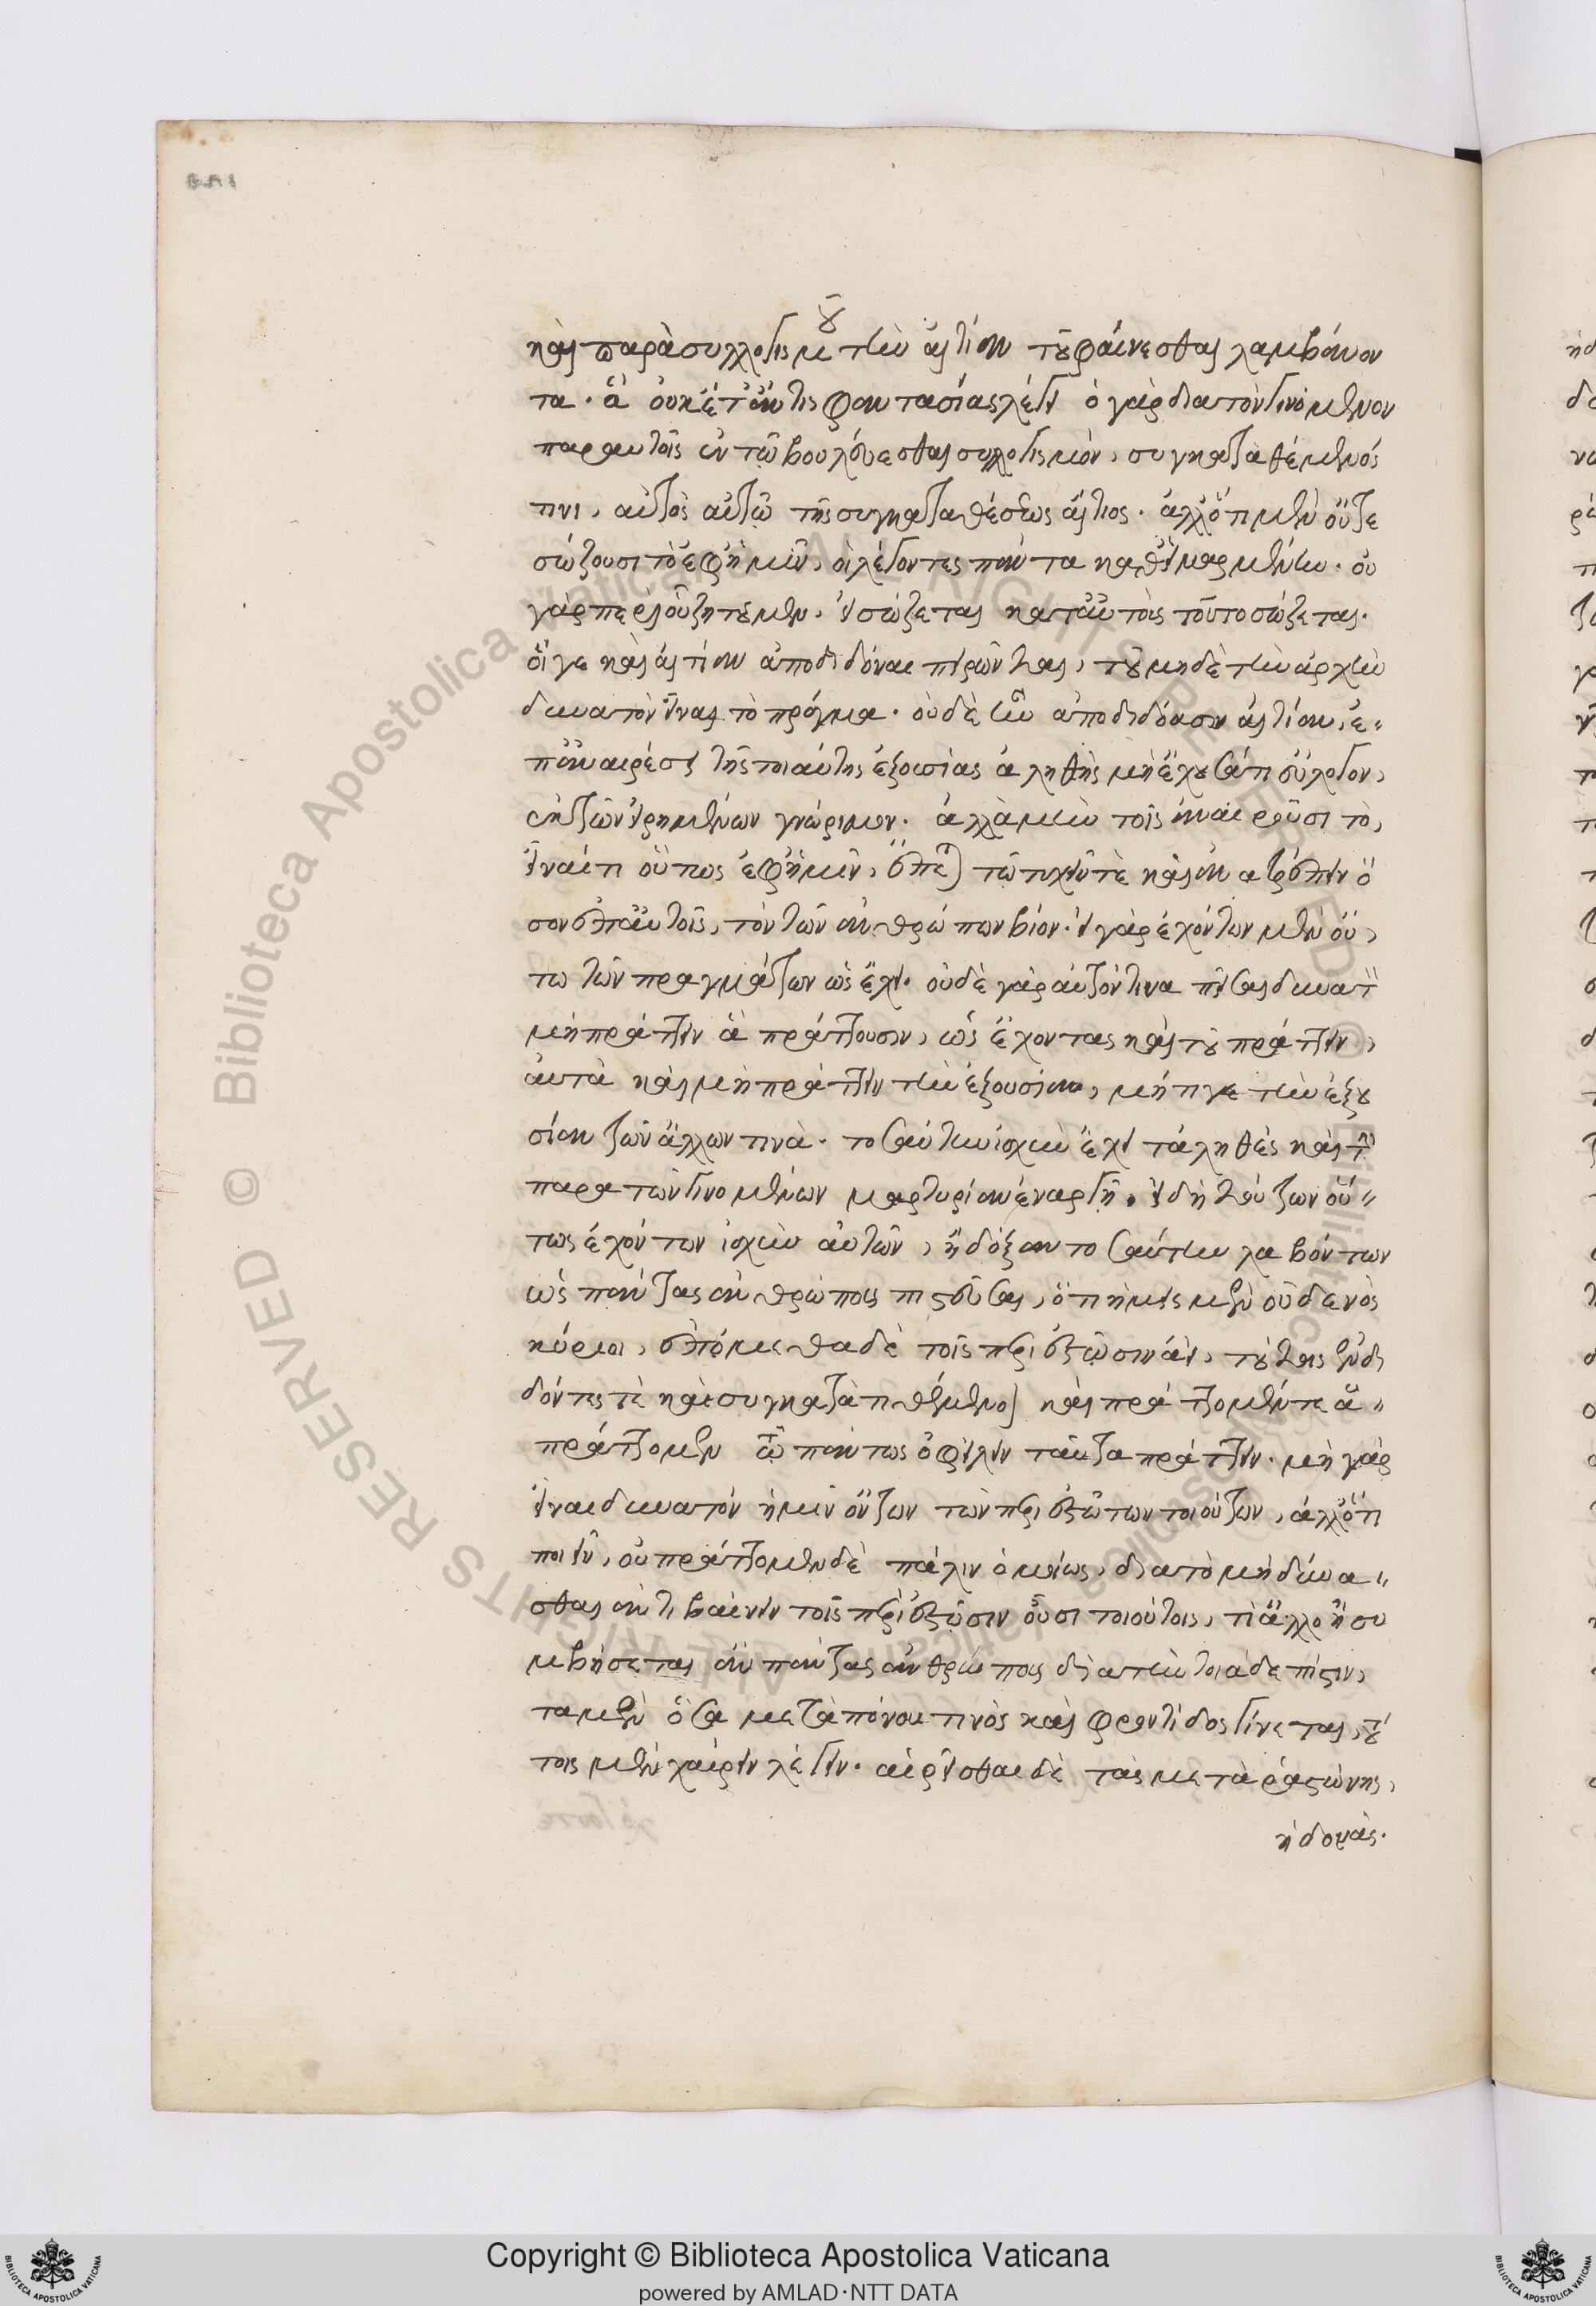 καὶ παρὰ συλλογισμοῦ τὴν αἰτίαν τοῦ φαίνεσθαι λαμβάνον
τα. ἃ οὐκέτ' ἄν τις φαντασίας λέγει ὁ γὰρ διὰ τὸν γινόμενον
παρ' αὐτοῖς ἐν τῷ βουλεύεσθαι συλλογισμὸν, συγκαταθέμενός
τινι, αὐτὸς αὐτῷ τῆς συγκαταθέσεως αἴτιος. ἀλλ' ὅτι μὲν οὔτε
σώζουσι τὸ ἐφ' ἡμῖν, οἱ λέγοντες πάντα καθ' εἱμαρμένην. οὐ
γὰρ περὶ οὗ ζητοῦμεν, εἰ σώζεται κατ' αὐτοὺς τοῦτο σώζεται.
οἵ γε καὶ αἰτίαν ἀποδιδόναι πειρῶνται, τοῦ μηδὲ τὴν ἀρχὴν
δυνατὸν εἶναι τὸ πρᾶγμα. οὐδὲ ἣν ἀποδιδόασιν αἰτίαν, ἐ
π' ἀναιρέσει τῆς τοιαύτης ἐξουσίας ἀληθὴς μὴ ἔχουσά τι εὔλογον,
ἐκ τῶν εἰρημένων γνώριμον. ἀλλὰ μὴν τοῖς ἀναιροῦσι τὸ,
εἶναί τι οὕτως ἐφ' ἡμῖν, ἕπεται τῷ συγχεῖν τε καὶ ἀνατρέπειν ὅ
σον ἐπ' αὐτοῖς, τὸν τῶν ἀνθρώπων βίον. εἰ γὰρ ἐχόντων μὲν οὕ,
τω τῶν πραγμάτων ὡς ἔχει. οὐδὲ γὰρ αὐτόν τινα πεῖσαι δυνατὸν
μὴ πράττειν ἃ πράττουσιν, ὡς ἔχοντας καὶ τοῦ πράττειν,
αὐτὰ καὶ μὴ πράττειν τὴν ἐξουσίαν, μήτι γε τὴν ἐξου
σίαν τῶν ἄλλων τινὰ. τοσαύτην ἰσχὺν ἔχει τἀληθὲς καὶ τὴν
παρὰ τῶν γινομένων μαρτυρίαν ἐναργῆ. εἰ δὴ τούτων οὕ
τως ἐχόντων ἰσχὺν αὐτῶν, ἡ δόξαν τοσαύτην λαβόντων
ὡς πάντας ἀνθρώπους πιστεῦσαι, ὅτι ἡμεῖς μὲν οὐδενὸς
κύριοι, ἑπόμεθα δὲ τοῖς περιεστῶσιν ἀεὶ, τούτοις ἐνδι
δόντες τε καὶ συγκατατιθέμενοι καὶ πράττομέν τε ἃ
πράττομεν τῷ πάντως ὀφείλειν ταῦτα πράττειν. μὴ γὰρ
εἶναι δυνατὸν ἡμῖν ὄντων τῶν περιεστώτων τοιούτων, ἄλλο τι
ποιεῖν, οὐ πράττομεν δὲ πάλιν ὁμοίως, διὰ τὸ μὴ δύνα
σθαι ἀντιβαίνειν τοῖς περιεστῶσιν οὖσι τοιούτοις, τί ἄλλο ἢ συ
μβήσεται ἂν πάντας ἀνθρώπους διὰ τὴν τοιάδε πίστιν,
τὰ μὲν ὅσα μετὰ πόνου τινὸς καὶ φροντίδος γίνεται, τού
τοις μὲν χαίρειν λέγειν. αἱρεῖσθαι δὲ τὰς μετὰ ῥᾳστώνης,
ἡδονάς.